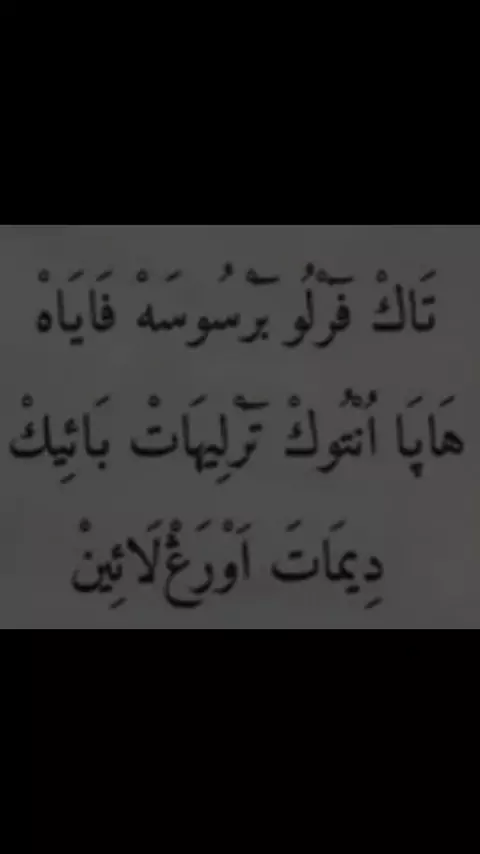 تَاكْ فَرْلُو بَرْسُوسَهْ فَايَاهْ
هَاپَا اُنْتُوكْ تَرْلِيهَاتْ بَائِيكْ
دِيمَاتَ اَوْرَڠْ لَائِينْ